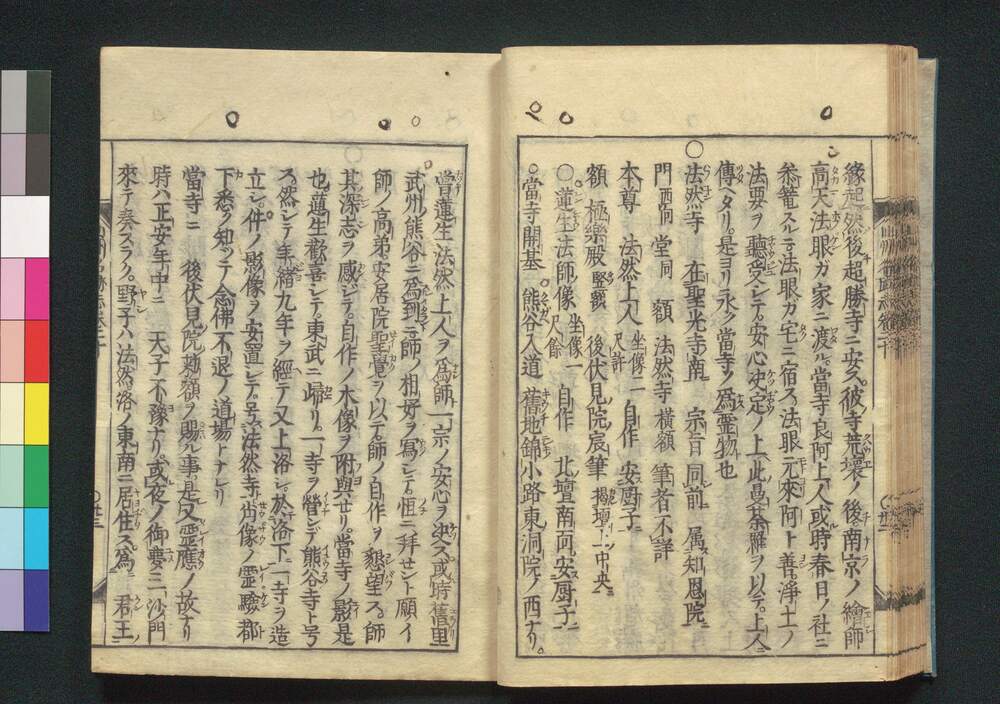 縁起然後超勝寺ニ安ス彼寺荒壊ノ後南京ノ繪師
高天法眼ガ家ニ渡ル當寺良阿上人或時春日ノ社ニ
叅篭スルニ法眼ガ宅ニ宿ス法眼元來阿ト善シ淨土ノ
法要ヲ聽受シテ安心决定ノ上此曼荼羅ヲ以テ上人ニ
傳ヘタリ是ヨリ永ク當寺ノ為靈物也
〇法然寺 在聖光寺南ニ 宗旨同前 属知恩院ニ
門西向 堂同 額 法然寺 横額 筆者不詳
本尊 法然上人 坐像二尺許 自作 安厨子ニ
額 極樂殿 竪額 後伏見院宸筆 掲壇上ノ中央ニ
〇蓮生法師像 坐像一尺餘 自作 北壇南向安厨子ニ
〇當寺開基 熊谷入道 舊地錦小路東洞院ノ西ナリ。
曾蓮生法然上人ヲ為師ト一宗ノ安心ヲ决ス或時舊里
武州熊谷ニ為到ト師ノ相好ヲ寫シテ恒ニ拜セント願イ
師ノ高弟安居院聖覺ヲ以テ師ノ自作ヲ懇望ス。師
其深志ヲ感ジテ自作ノ木像ヲ附與セリ。當寺ノ影是
也蓮生歡喜シテ東武ニ歸リ。一寺ヲ營シテ熊谷寺ト号
ス然シテ年緒九年ヲ經テ又上洛シ於洛下ニ一寺ヲ造
立シ件ノ影像ヲ安置シテ号法然寺ト尚像ノ霊驗都
下悉ク知ツテ念佛不退ノ道場トナレリ
當寺ニ 後伏見院勅額ヲ賜ル事是又霊應ノ故ナリ
時ハ正安年中ニ 天子不豫ナリ。或夜ノ御夢ニ一沙門
來テ奏スラク。野子ハ法然洛ノ東南ニ居住ス為ニ 君王ノ